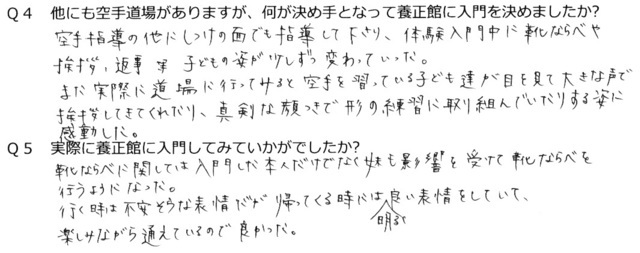 Q4 他にも空手道場がありますが、何が決め手となって養正館に入門を決めましたか?
空手指導の他にしつけの面でも指導して下さり、体験入門中に靴ならべや
挨拶、返事 等 子どもの姿が少しずつ変わっていった。
また実際に道場に行ってみると空手を習っている子ども達が目を見て大きな声で
挨拶してきてくれたり、真剣な顔つきで形の練習に取り組んでいたりする姿に
感動した。
Q5 実際に養正館に入門してみていかがでしたか?
靴ならべに関しては入門した本人だけでなく妹も影響を受けて靴ならべを
行うようになった。
行く時は不安そうな表情だが帰ってくる時には良い表情をしていて、
明るく
楽しみながら通えているので良かった。